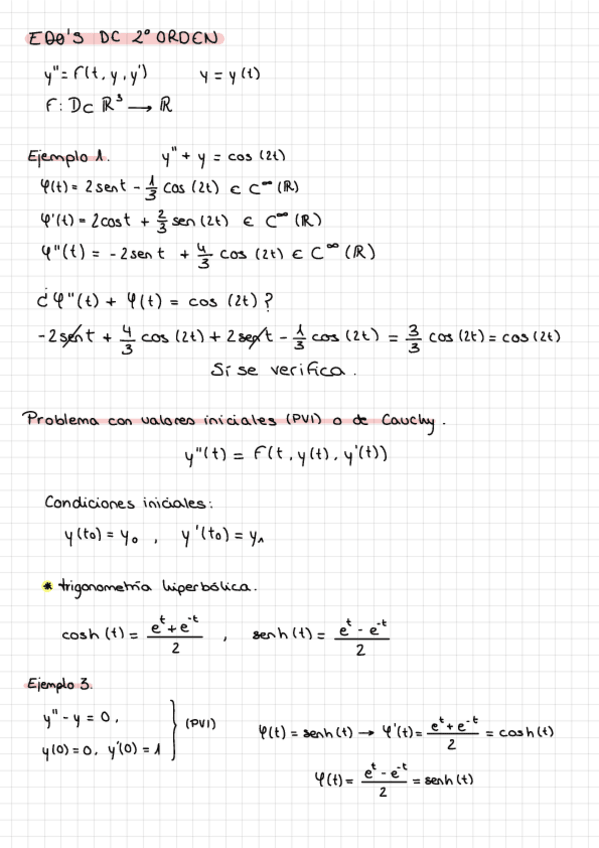 EDO'S DC 2º ORDEN
y'' = f(t, y, y')   y = y(t)
F: D ⊂ ℝ³ → ℝ
Ejemplo 1.   y'' + y = cos (2t)
φ(t) = 2 sent - 1/3 cos (2t) ∈ C^∞ (ℝ)
φ'(t) = 2cost + 2/3 sen (2t) ∈ C^∞ (ℝ)
φ''(t) = -2sen t + 4/3 cos (2t) ∈ C^∞ (ℝ)
¿φ''(t) + φ(t) = cos (2t)?
-2sent + 4/3 cos (2t) + 2sent - 1/3 cos (2t) = 3/3 cos (2t) = cos (2t)
Sí se verifica.
Problema con valores iniciales (PVI) o de Cauchy.
y''(t) = F(t, y(t), y'(t))
Condiciones iniciales:
y(t0) = y₀ , y'(t0) = y₁
* trigonometría hiperbólica.
cosh (t) = (e^t + e^-t)/2 , senh (t) = (e^t - e^-t)/2
Ejemplo 3.
y'' - y = 0,
y(0) = 0, y'(0) = 1 } (PVI)
φ(t) = senh (t) → φ'(t) = (e^t + e^-t)/2 = cosh (t)
φ(t) = (e^t - e^-t)/2 = senh (t)